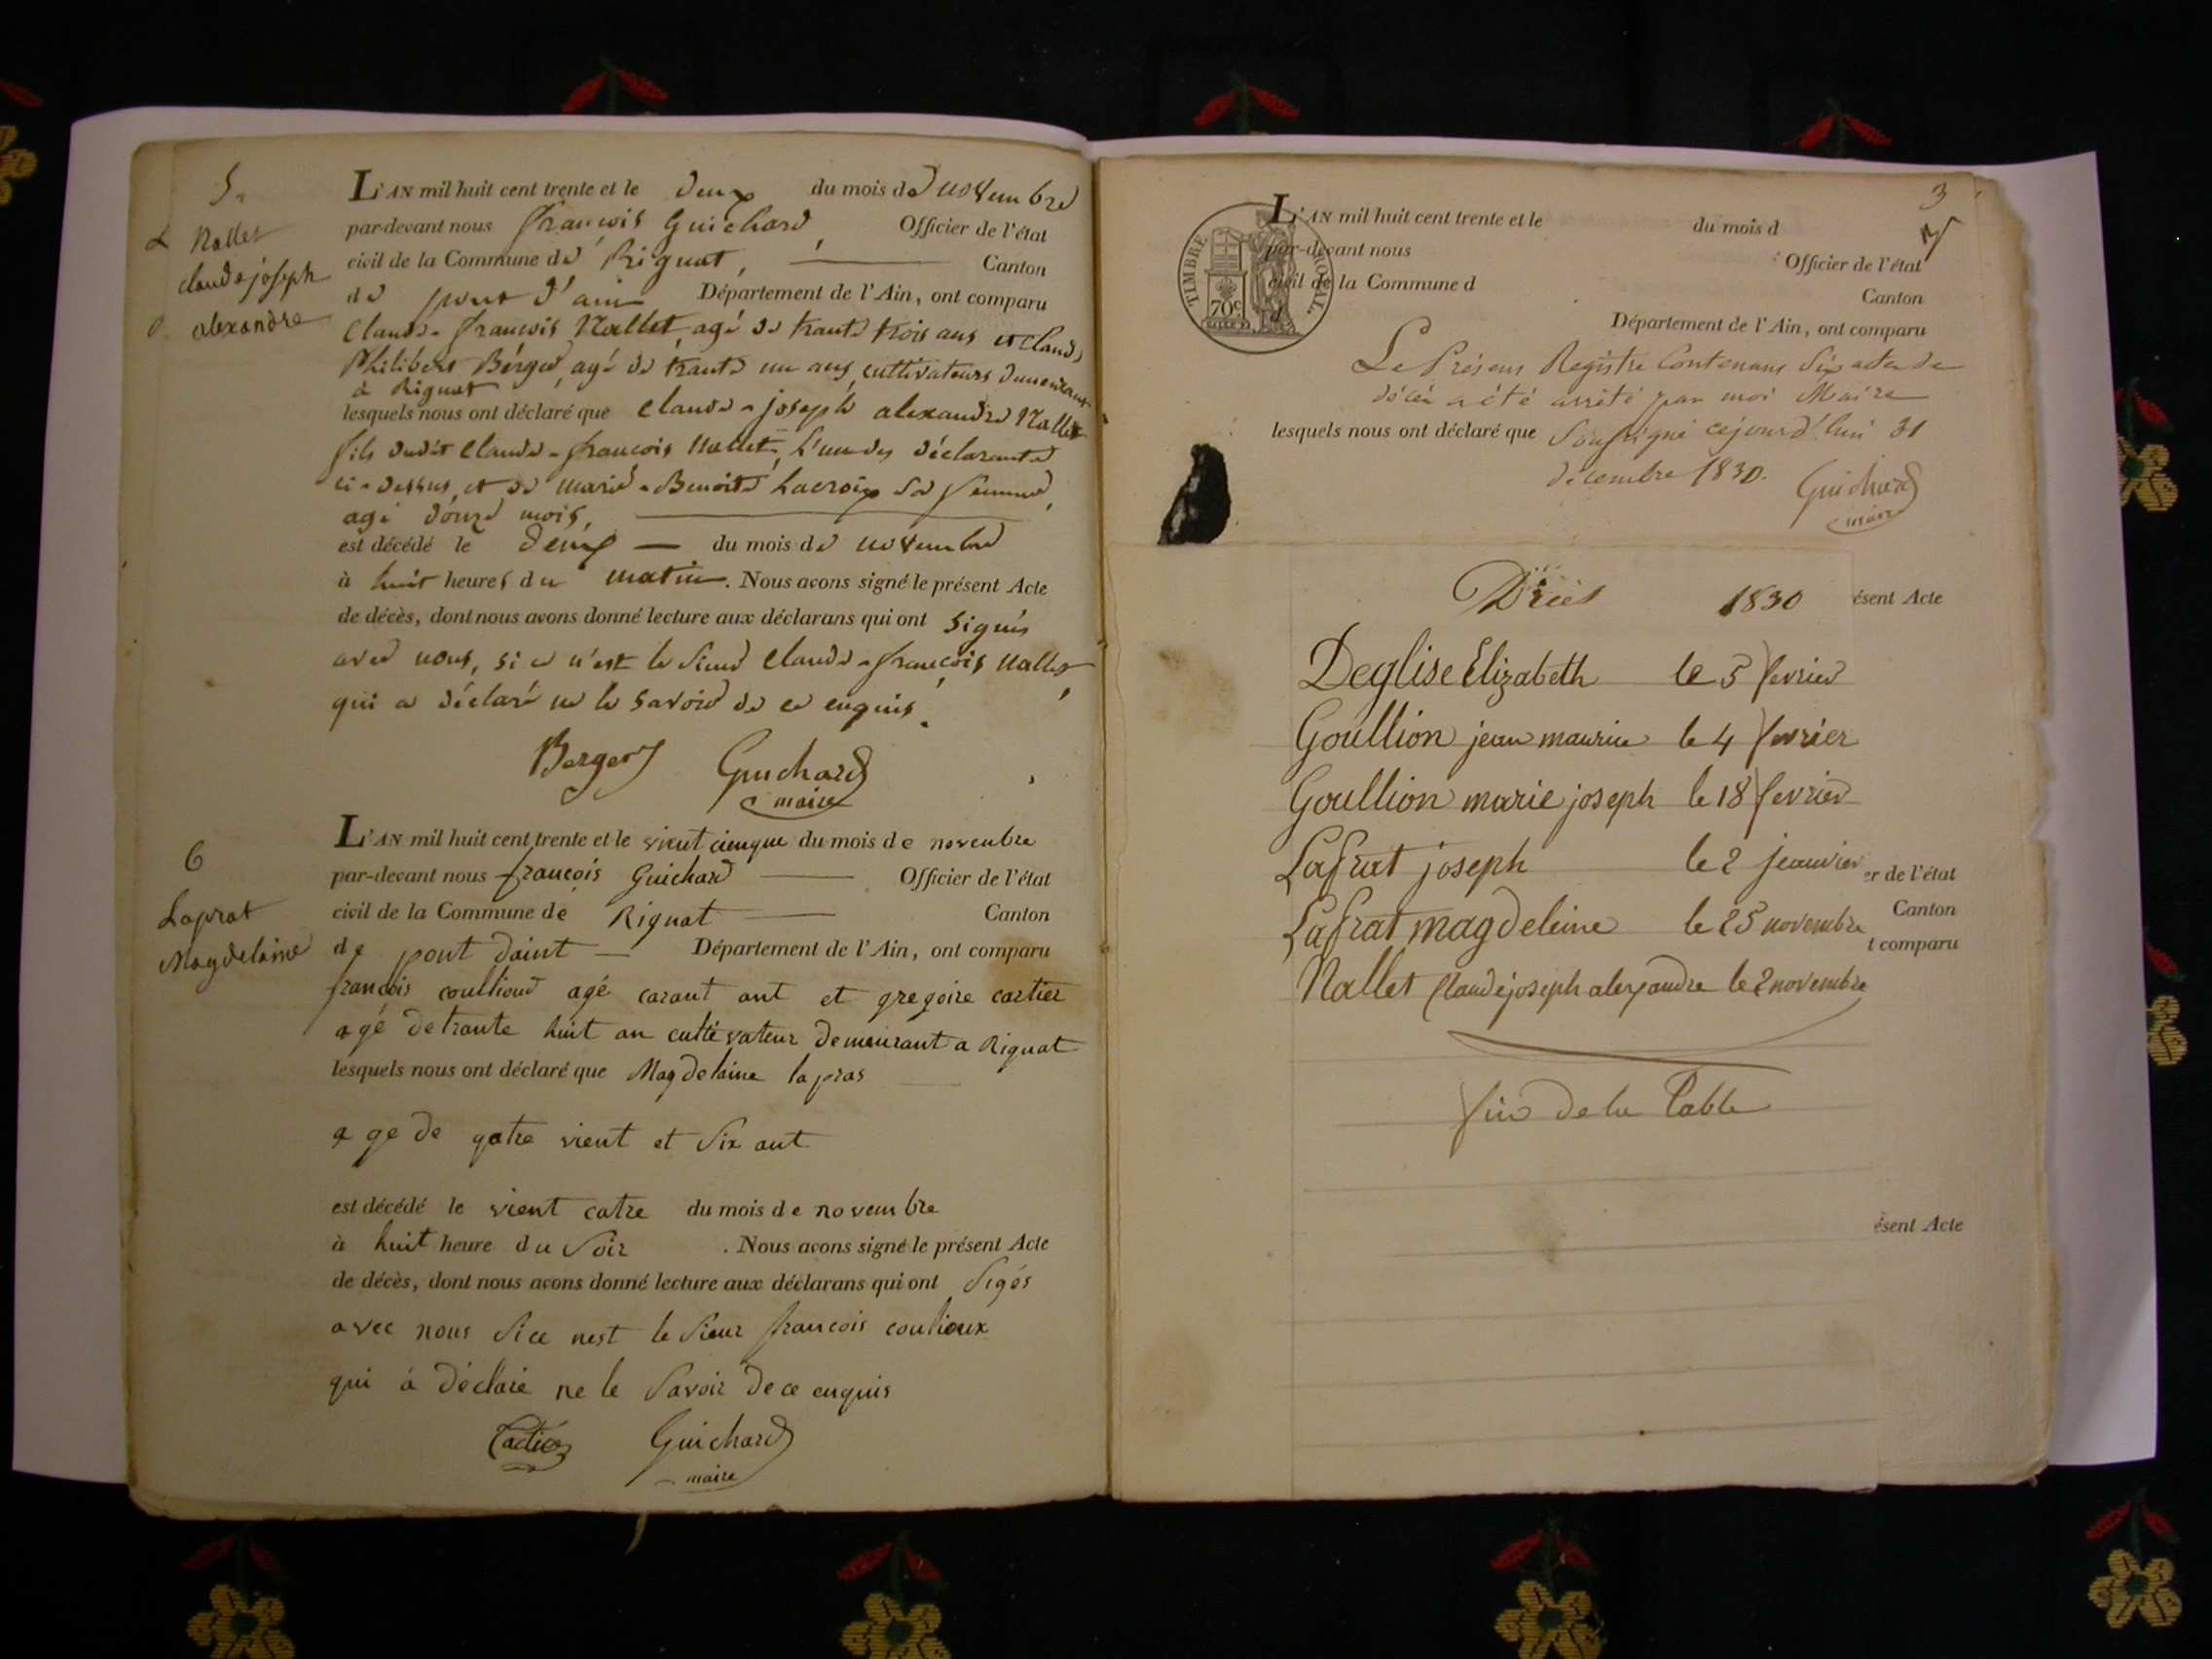 5.
Nallet
claude joseph
alexandre
L'AN mil huit cent trente et le deux du mois de novembre
par-devant nous françois Guichard, Officier de l'état
civil de la Commune de Rignat, Canton
de pont d'ain Département de l'Ain, ont comparu
Claude-françois Nallet, agé de trante trois ans et Claude
Philibert Berger, agé de trante un ans, cultivateurs demeurant
à Rignat
lesquels nous ont déclaré que Claude-joseph alexandre Nallet
fils dudit Claude-françois Nallet, l'un des déclarants
ci-dessus, et de marie-Benoite Lacroix sa femme,
agé douze mois,
est décédé le deux du mois de novembre
à huit heures du matin. Nous avons signé le présent Acte
de décès, dont nous avons donné lecture aux déclarans qui ont signés
avec nous, si ce n'est le sieur Claude-françois Nallet,
qui a déclaré ne le savoir de ce enquis.
Berger Guichard
maire
6
Laprat
Magdelaine
L'AN mil huit cent trente et le vient cienque du mois de novenbre
par-devant nous françois Guichard Officier de l'état
civil de la Commune de Rignat Canton
de pont daint Département de l'Ain, ont comparu
françois coulloud agé carant ant et gregoire cartier
agé de trante huit an cultivateur demeurant a Rignat
lesquels nous ont déclaré que Magdelaine lapras
age de qatre vient et six ant
est décédé le vient catre du mois de novembre
à huit heure du soir. Nous avons signé le présent Acte
de décès, dont nous avons donné lecture aux déclarans qui ont sigés
avec nous si ce nest le sieur françois coulioux
qui à déclaré ne le savoir de ce enquis
Guichard
maire
3
L'AN mil huit cent trente et le du mois d
par-devant nous Officier de l'état
civil de la Commune d Canton
d Département de l'Ain, ont comparu
TIMBRE ROYAL
70c
Le Présent Registre Contenant six actes de
décès a été arrêté par moi Maire
lesquels nous ont déclaré que soussigné cejourd'hui 31
décembre 1830. Guichard
maire
1830 ésent Acte
Deglise Elizabeth le 5 fevrier
Goullion jean maurice le 4 fevrier
Goullion marie joseph le 18 fevrier
Laprat joseph le 2 jeanvier
er de l'état
Laprat magdeleine le 25 novembre
Canton
t comparu
Nallet Claude joseph alexandre le 2 novembre
fin de la Table
ésent Acte